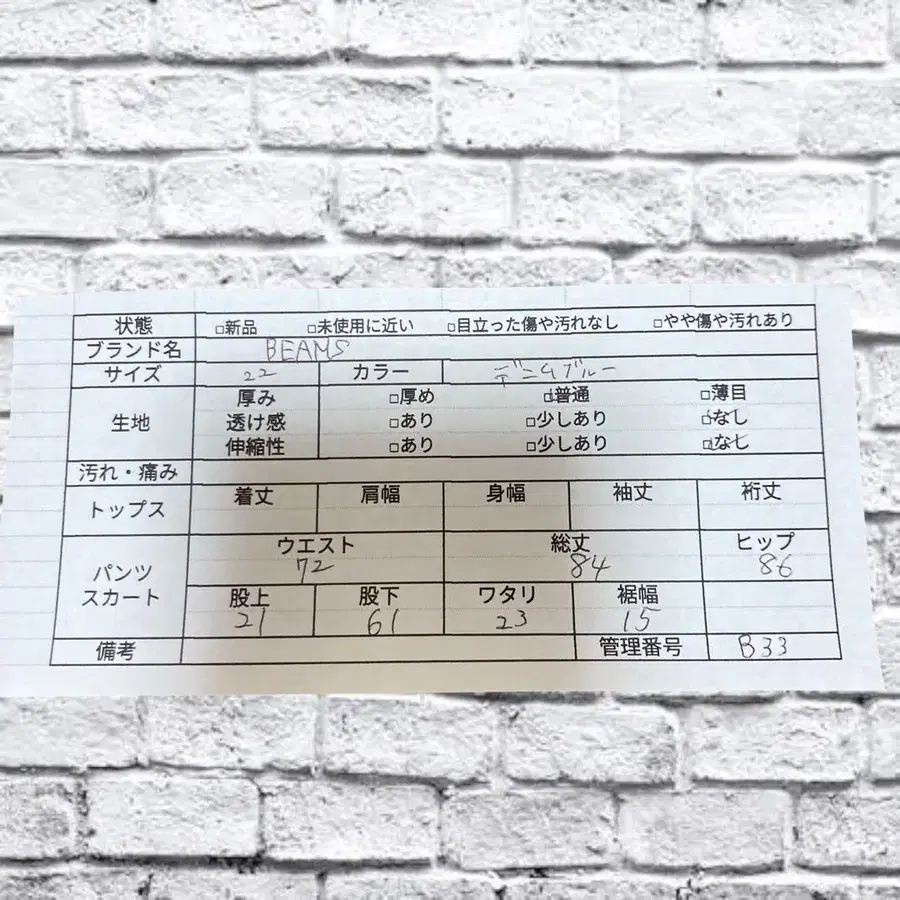 状態 □新品 □未使用に近い □目立った傷や汚れなし □やや傷や汚れあり
ブランド名 BEAMS
サイズ 22 カラー デニムブルー
生地 厚み □厚め □普通 □薄目
透け感 □あり □少しあり □なし
伸縮性 □あり □少しあり □なし
汚れ・痛み
トップス 着丈 肩幅 身幅 袖丈 裄丈
パンツ スカート ウエスト 総丈 ヒップ
72 84 86
股上 股下 ワタリ 裾幅
21 61 23 15
備考 管理番号 B33